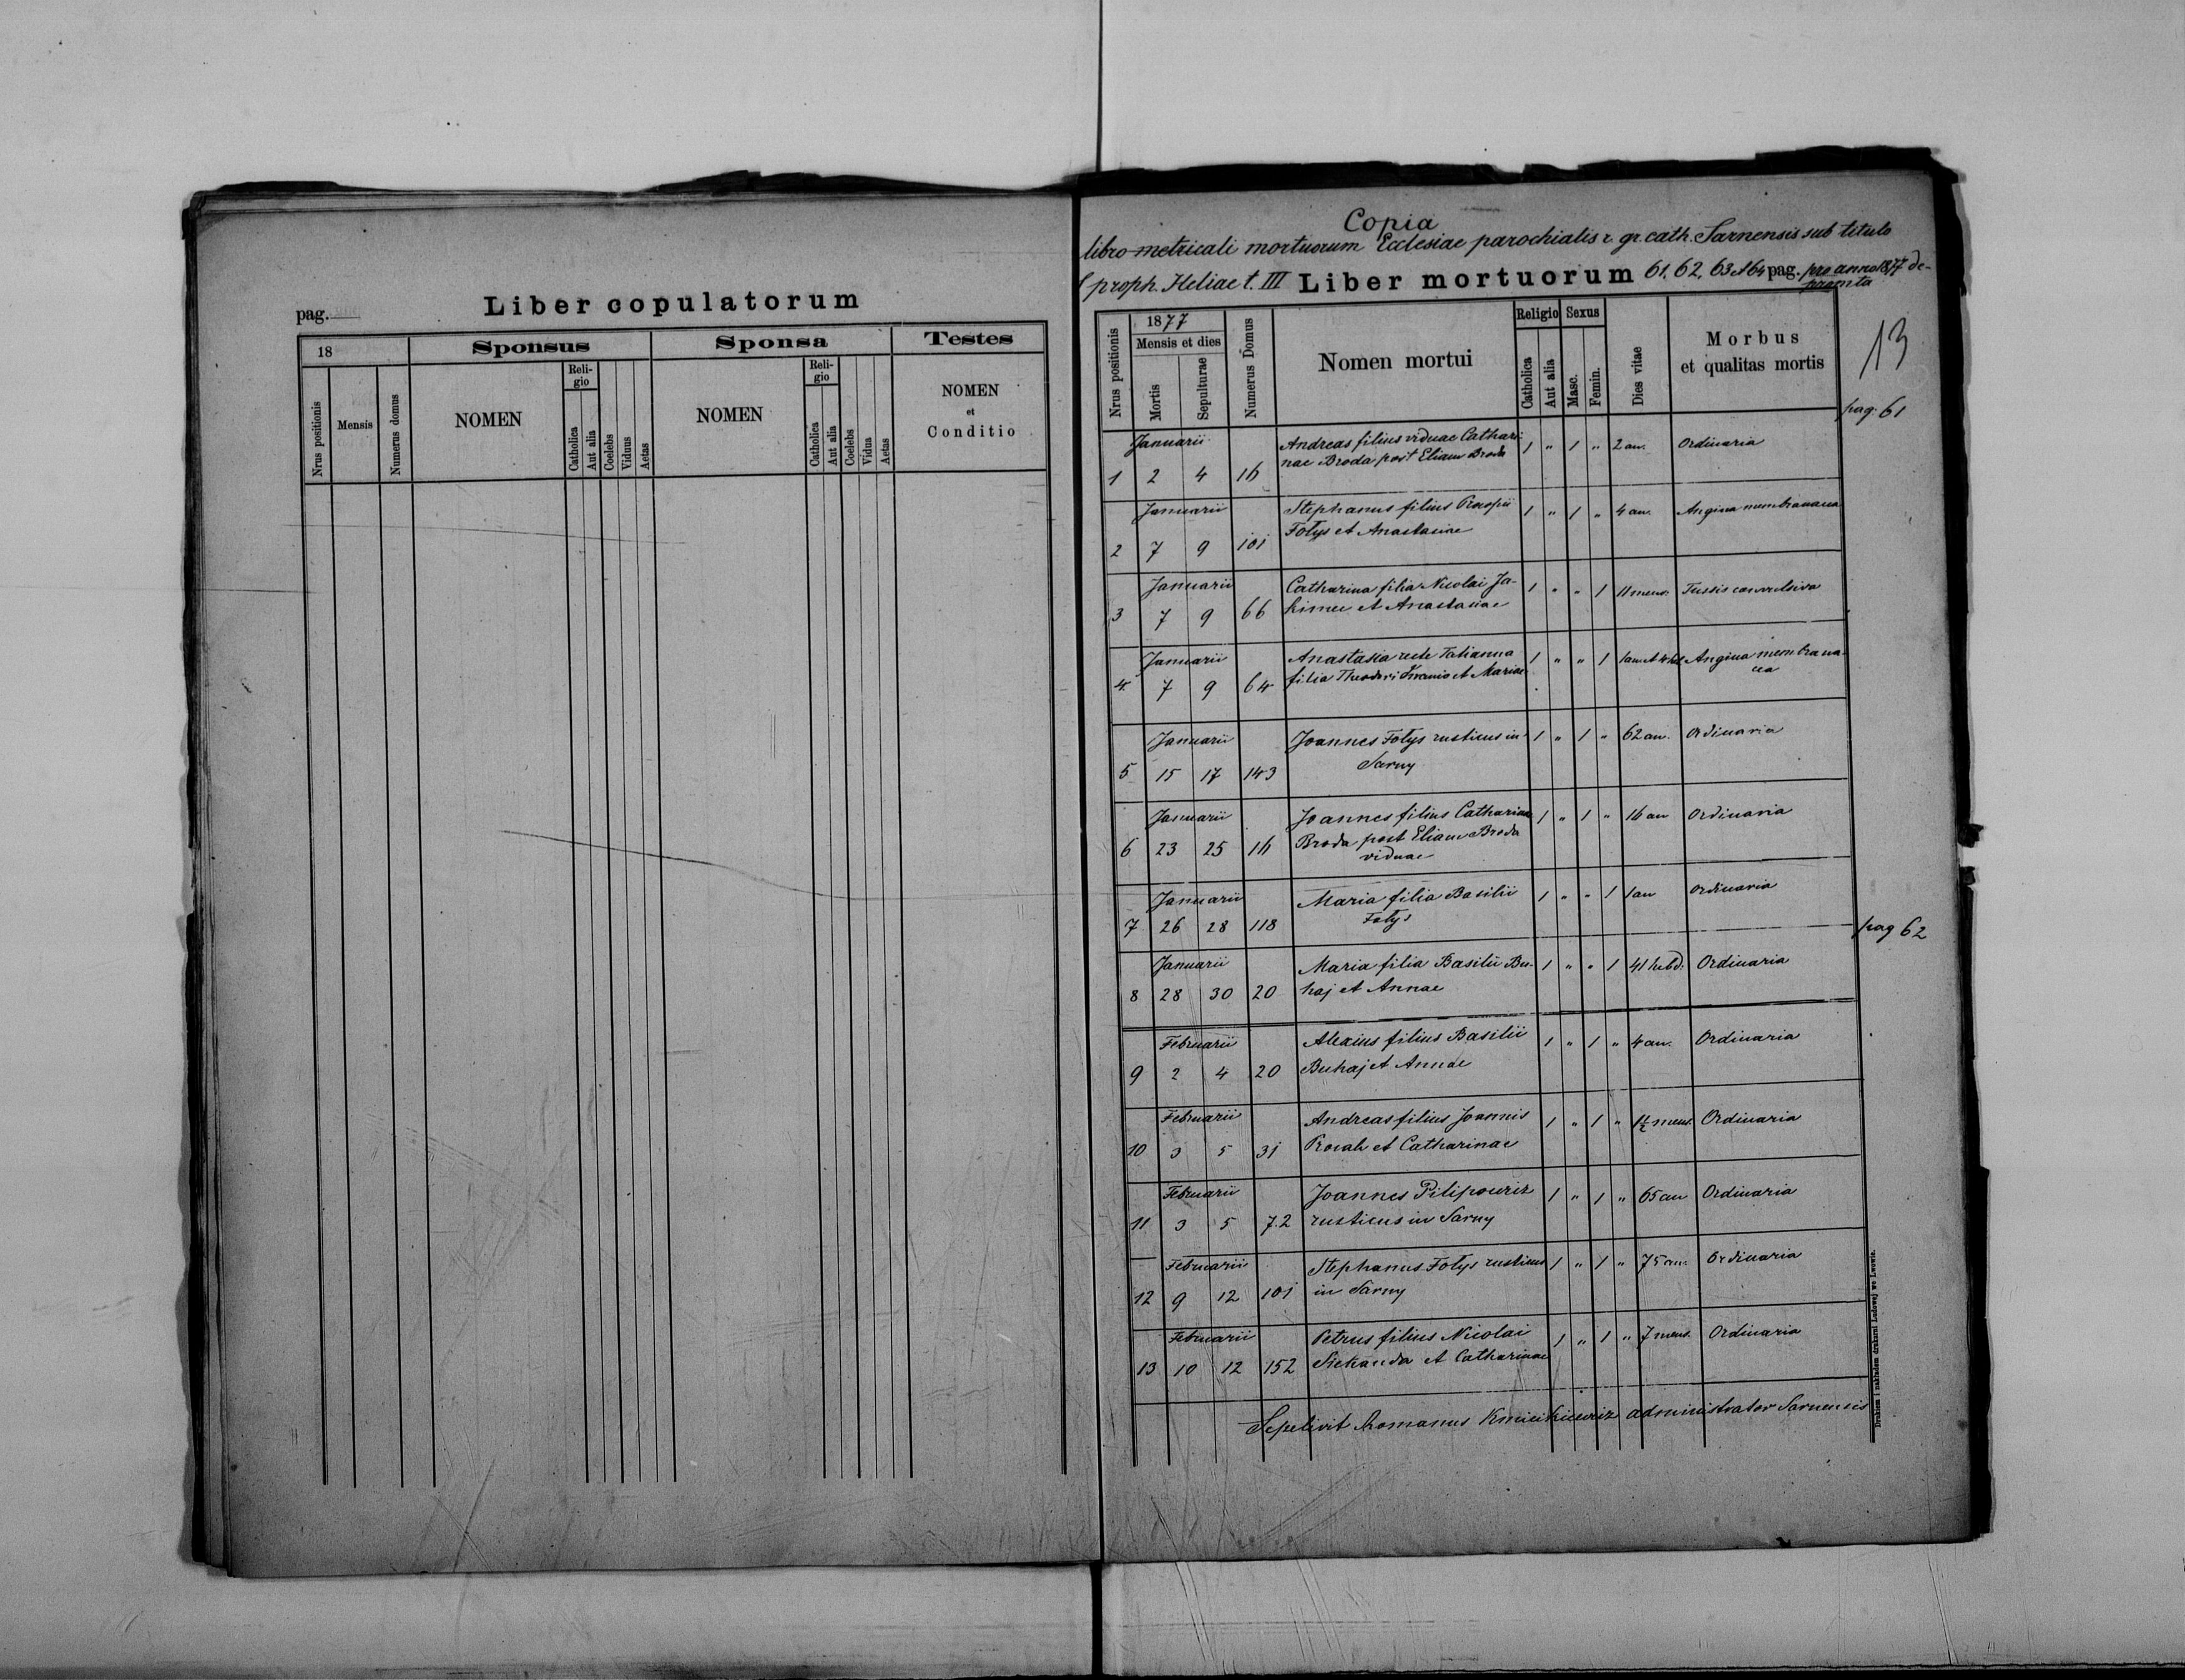 pag.
Liber copulatorum
18
Sponsus
Sponsa
Testes
Nrus positionis
Mensis
Numerus domus
NOMEN
Reli-
gio
Catholica
Aut alia
Coelebs
Viduus
Aetas
NOMEN
Reli-
gio
Catholica
Aut alia
Coelebs
Vidua
Aetas
NOMEN
et
Conditio
Copia
libro metricali mortuorum Ecclesiae parochialis r. gr. cath. Sarnensis sub titulo
proph. Heliae t. III Liber mortuorum 61, 62, 63 et 64 pag. pro anno 1877 de-
prompta
13
Nrus positionis
1877
Mensis et dies
Mortis
Sepulturae
Numerus Domus
Nomen mortui
Religio
Catholica
Aut alia
Sexus
Masc.
Femin.
Dies vitae
Morbus
et qualitas mortis
pag. 61
Januarii Andreas filius viduae Cathari- 1 " 1 " 2 an. Ordinaria
1 2 4 16 nae Broda post Eliam Broda
Januarii Stephanus filius Procopii 1 " 1 " 4 an. Angina membranacea
2 7 9 101 Fotys et Anastasiae
Januarii Catharina filia Nicolai Ja- 1 " " 1 11 mens. Tussis convulsiva
3 7 9 66 kimec et Anastasiae
Januarii Anastasia recte Tatianna 1 " " 1 1 an. et Angina membrana-
4 7 9 64 filia Theodori et Mariae cea
Januarii Joannes Fotys rusticus in 1 " 1 " 62 an. Ordinaria
5 15 17 143 Sarny
Januarii Joannes filius Catharinae 1 " 1 " 16 an Ordinaria
6 23 25 16 Broda post Eliam Broda
viduae
Januarii Maria filia Basilii 1 " " 1 1 an Ordinaria
7 26 28 118 Fotys
pag 62
Januarii Maria filia Basilii Bu- 1 " " 1 41 hebd. Ordinaria
8 28 30 20 haj et Annae
Februarii Alexius filius Basilii 1 " 1 " 4 an. Ordinaria
9 2 4 20 Buhaj et Annae
Februarii Andreas filius Joannis 1 " 1 " 1½ mens. Ordinaria
10 3 5 31 et Catharinae
Februarii Joannes Pilipowicz 1 " 1 " 65 an Ordinaria
11 3 5 72 rusticus in Sarny
Februarii Stephanus Fotys rusticus 1 " 1 " 75 an. Ordinaria
12 9 12 101 in Sarny
Februarii Petrus filius Nicolai 1 " 1 " 7 mens. Ordinaria
13 10 12 152 Siekanda et Catharinae
Sepelivit Romanus Kmicikiewicz administrator Sarnensis
Drukiem i nakładem drukarni Ludowej we Lwowie.